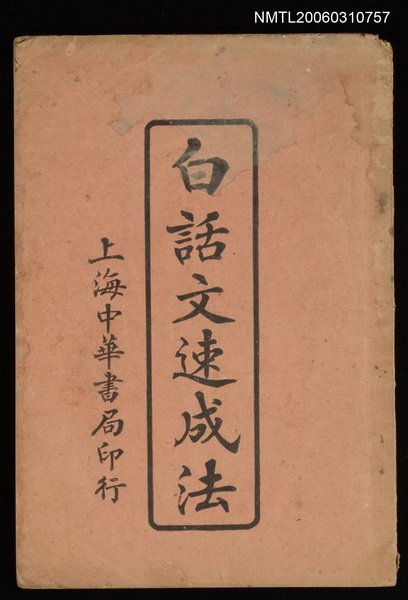 NMTL20060310757
白話文速成法
上海中華書局印行